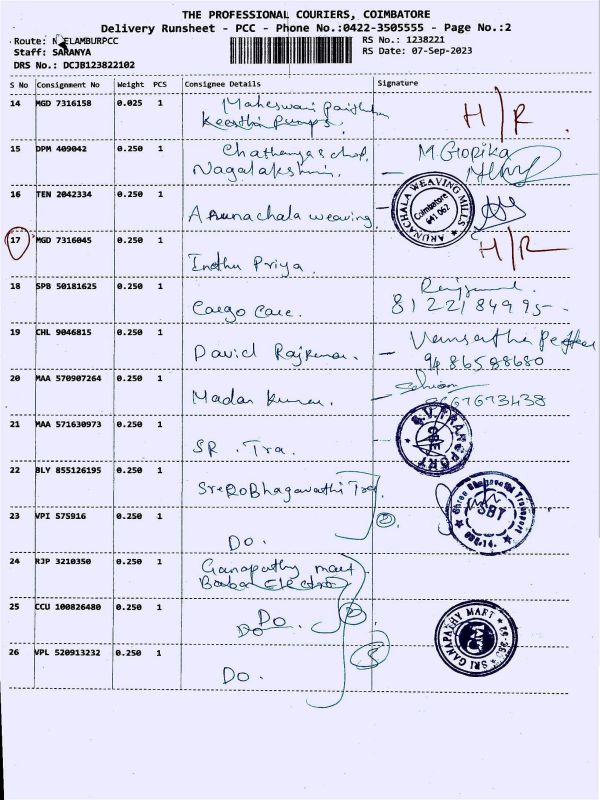 THE PROFESSIONAL COURIERS, COIMBATORE
Delivery Runsheet - PCC - Phone No.:0422-3505555 - Page No.:2
Route: NEELAMBURPCC
RS No.: 1238221
Staff: SARANYA
RS Date: 07-Sep-2023
DRS No.: DCJB123822102
S No Consignment No Weight PCS Consignee Details Signature
14 MGD 7316158 0.025 1 Maheswari
Keerthi Pumps. H/R.
15 DPM 409042 0.250 1 M. Gopika
Nagalakshmi.
16 TEN 2042334 0.250 1 Arunachala weaving
ARUNACHALA WEAVING MILLS
Coimbatore
641 062
17 MGD 7316045 0.250 1 H/R
Indhu Priya.
18 SPB 50181625 0.250 1
Cargo Care. 8122184995
19 CHL 9046815 0.250 1
David Rajkumar. - 9486588680
20 MAA 570907264 0.250 1
Madan Kumar.
21 MAA 571630973 0.250 1
SR. Tra.
S.V. TRANSPORT
CBE
22 BLY 855126195 0.250 1 Sree Bhagavathi Tra
Shree Bhagavathi Transport
SBT
23 VPI 575916 0.250 1 2
Do.
24 RJP 3210350 0.250 1 Ganapathy mart
25 CCU 100826480 0.250 1 Do. 2
Do
SRI GANAPATHY MART
26 VPL 520913232 0.250 1 3
Do.